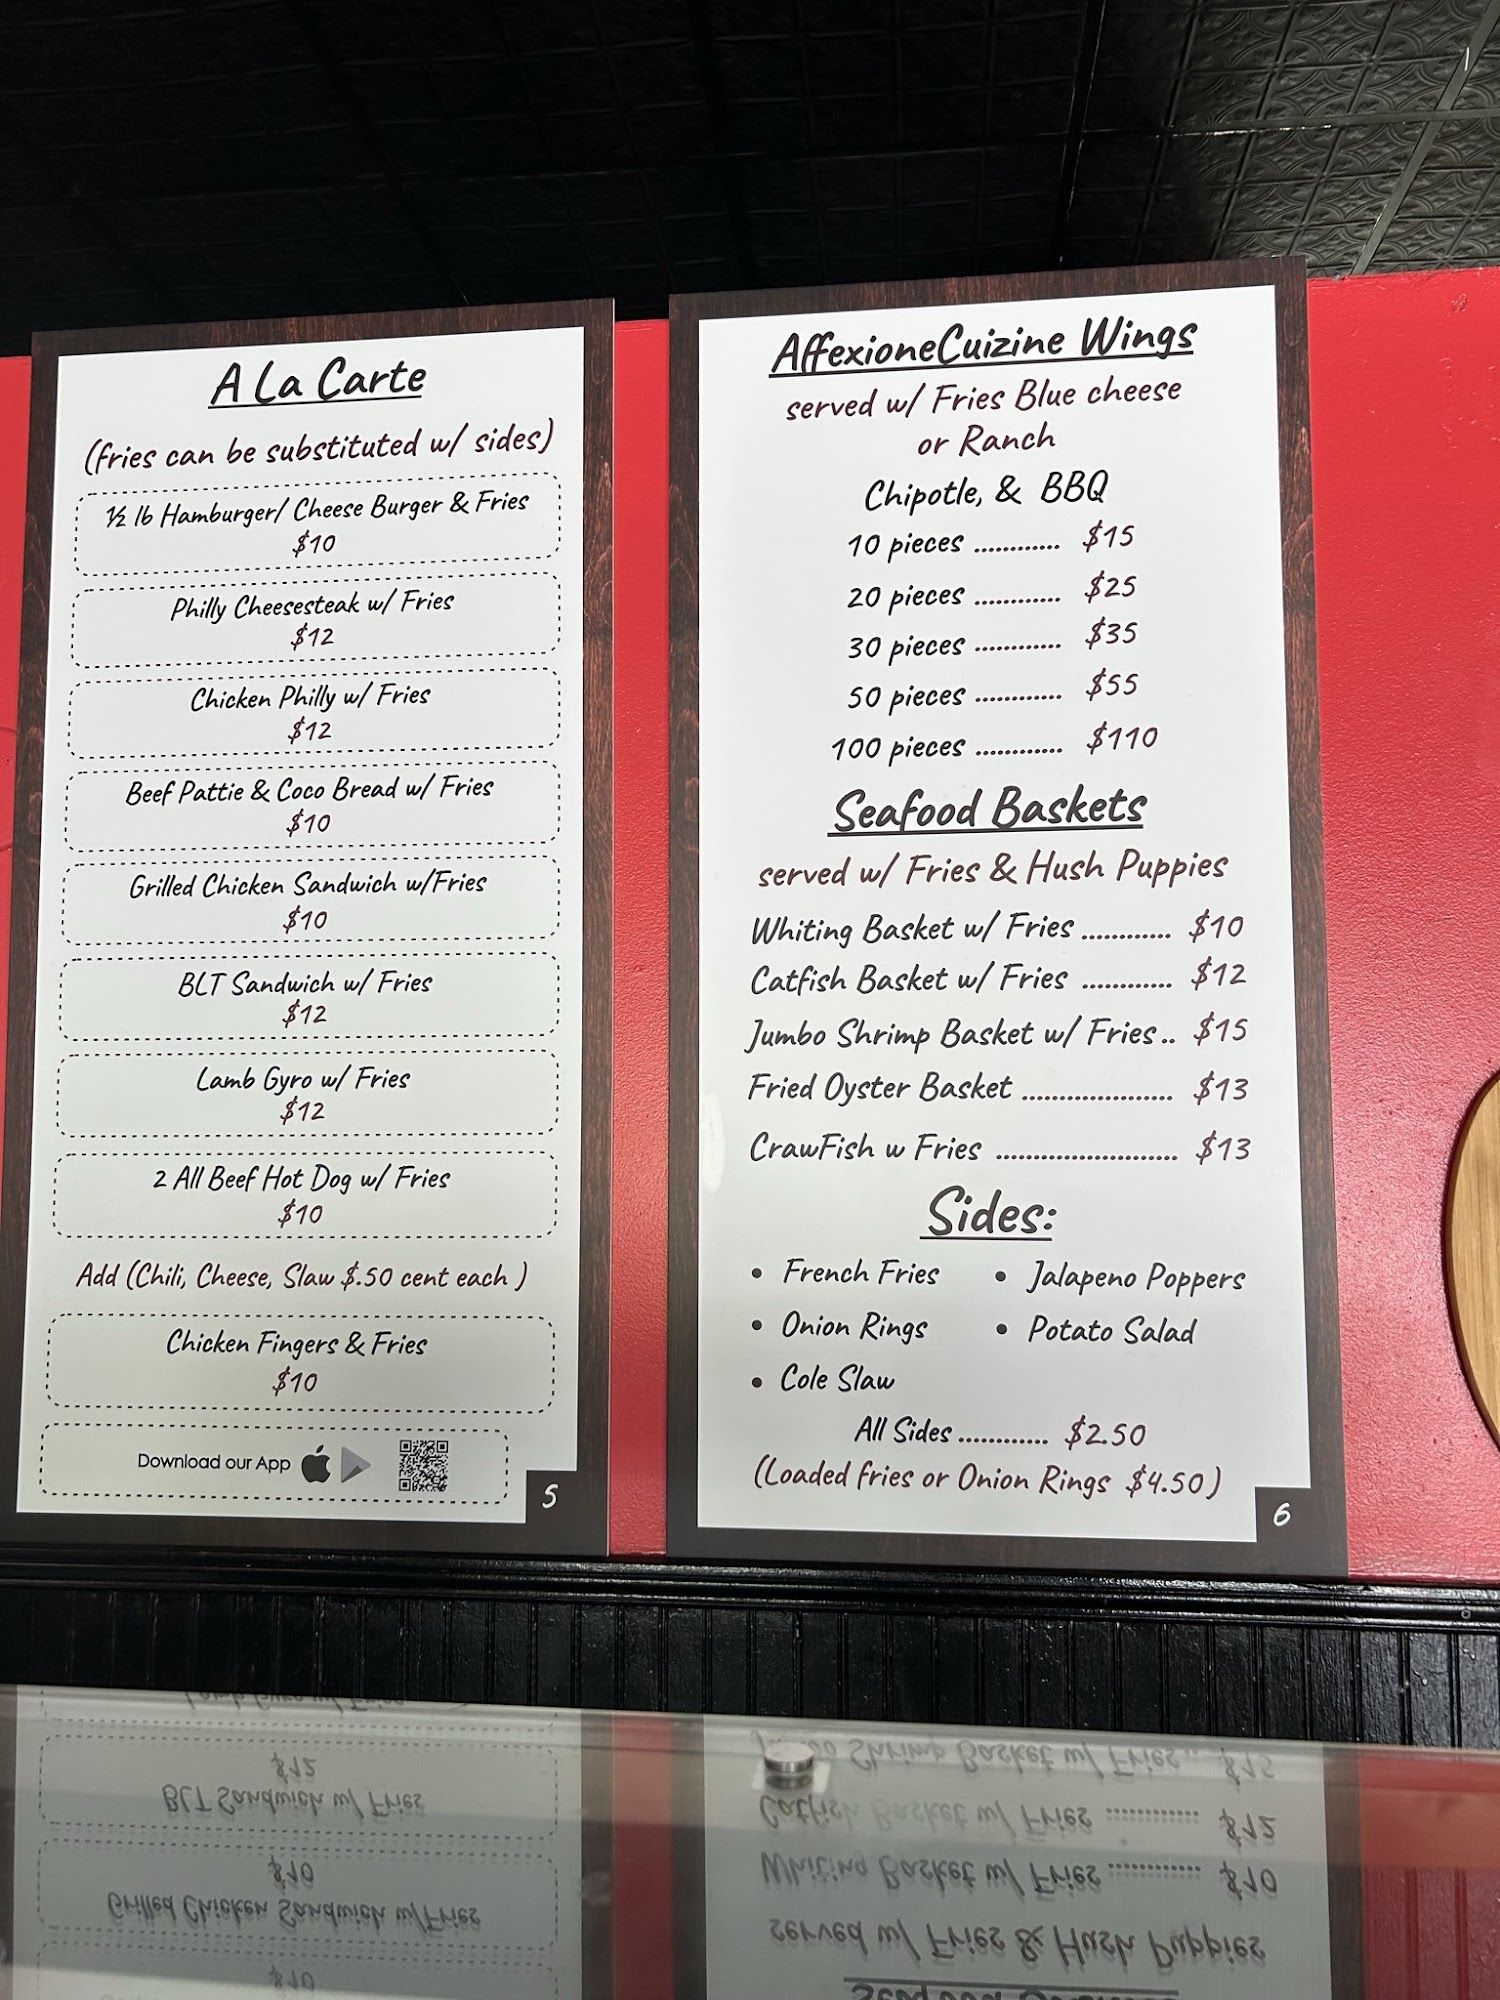 A La Carte
(fries can be substituted w/ sides)
½ lb Hamburger/ Cheese Burger & Fries
$10
Philly Cheesesteak w/ Fries
$12
Chicken Philly w/ Fries
$12
Beef Pattie & Coco Bread w/ Fries
$10
Grilled Chicken Sandwich w/Fries
$10
BLT Sandwich w/ Fries
$12
Lamb Gyro w/ Fries
$12
2 All Beef Hot Dog w/ Fries
$10
Add (Chili, Cheese, Slaw $.50 cent each )
Chicken Fingers & Fries
$10
Download our App
5
AffexioneCuizine Wings
served w/ Fries Blue cheese
or Ranch
Chipotle, & BBQ
10 pieces ............ $15
20 pieces ............ $25
30 pieces ............ $35
50 pieces ............ $55
100 pieces ............ $110
Seafood Baskets
served w/ Fries & Hush Puppies
Whiting Basket w/ Fries ............ $10
Catfish Basket w/ Fries ............ $12
Jumbo Shrimp Basket w/ Fries.. $15
Fried Oyster Basket ..................... $13
CrawFish w Fries ......................... $13
Sides:
• French Fries • Jalapeno Poppers
• Onion Rings • Potato Salad
• Cole Slaw
All Sides ............ $2.50
(Loaded fries or Onion Rings $4.50)
6